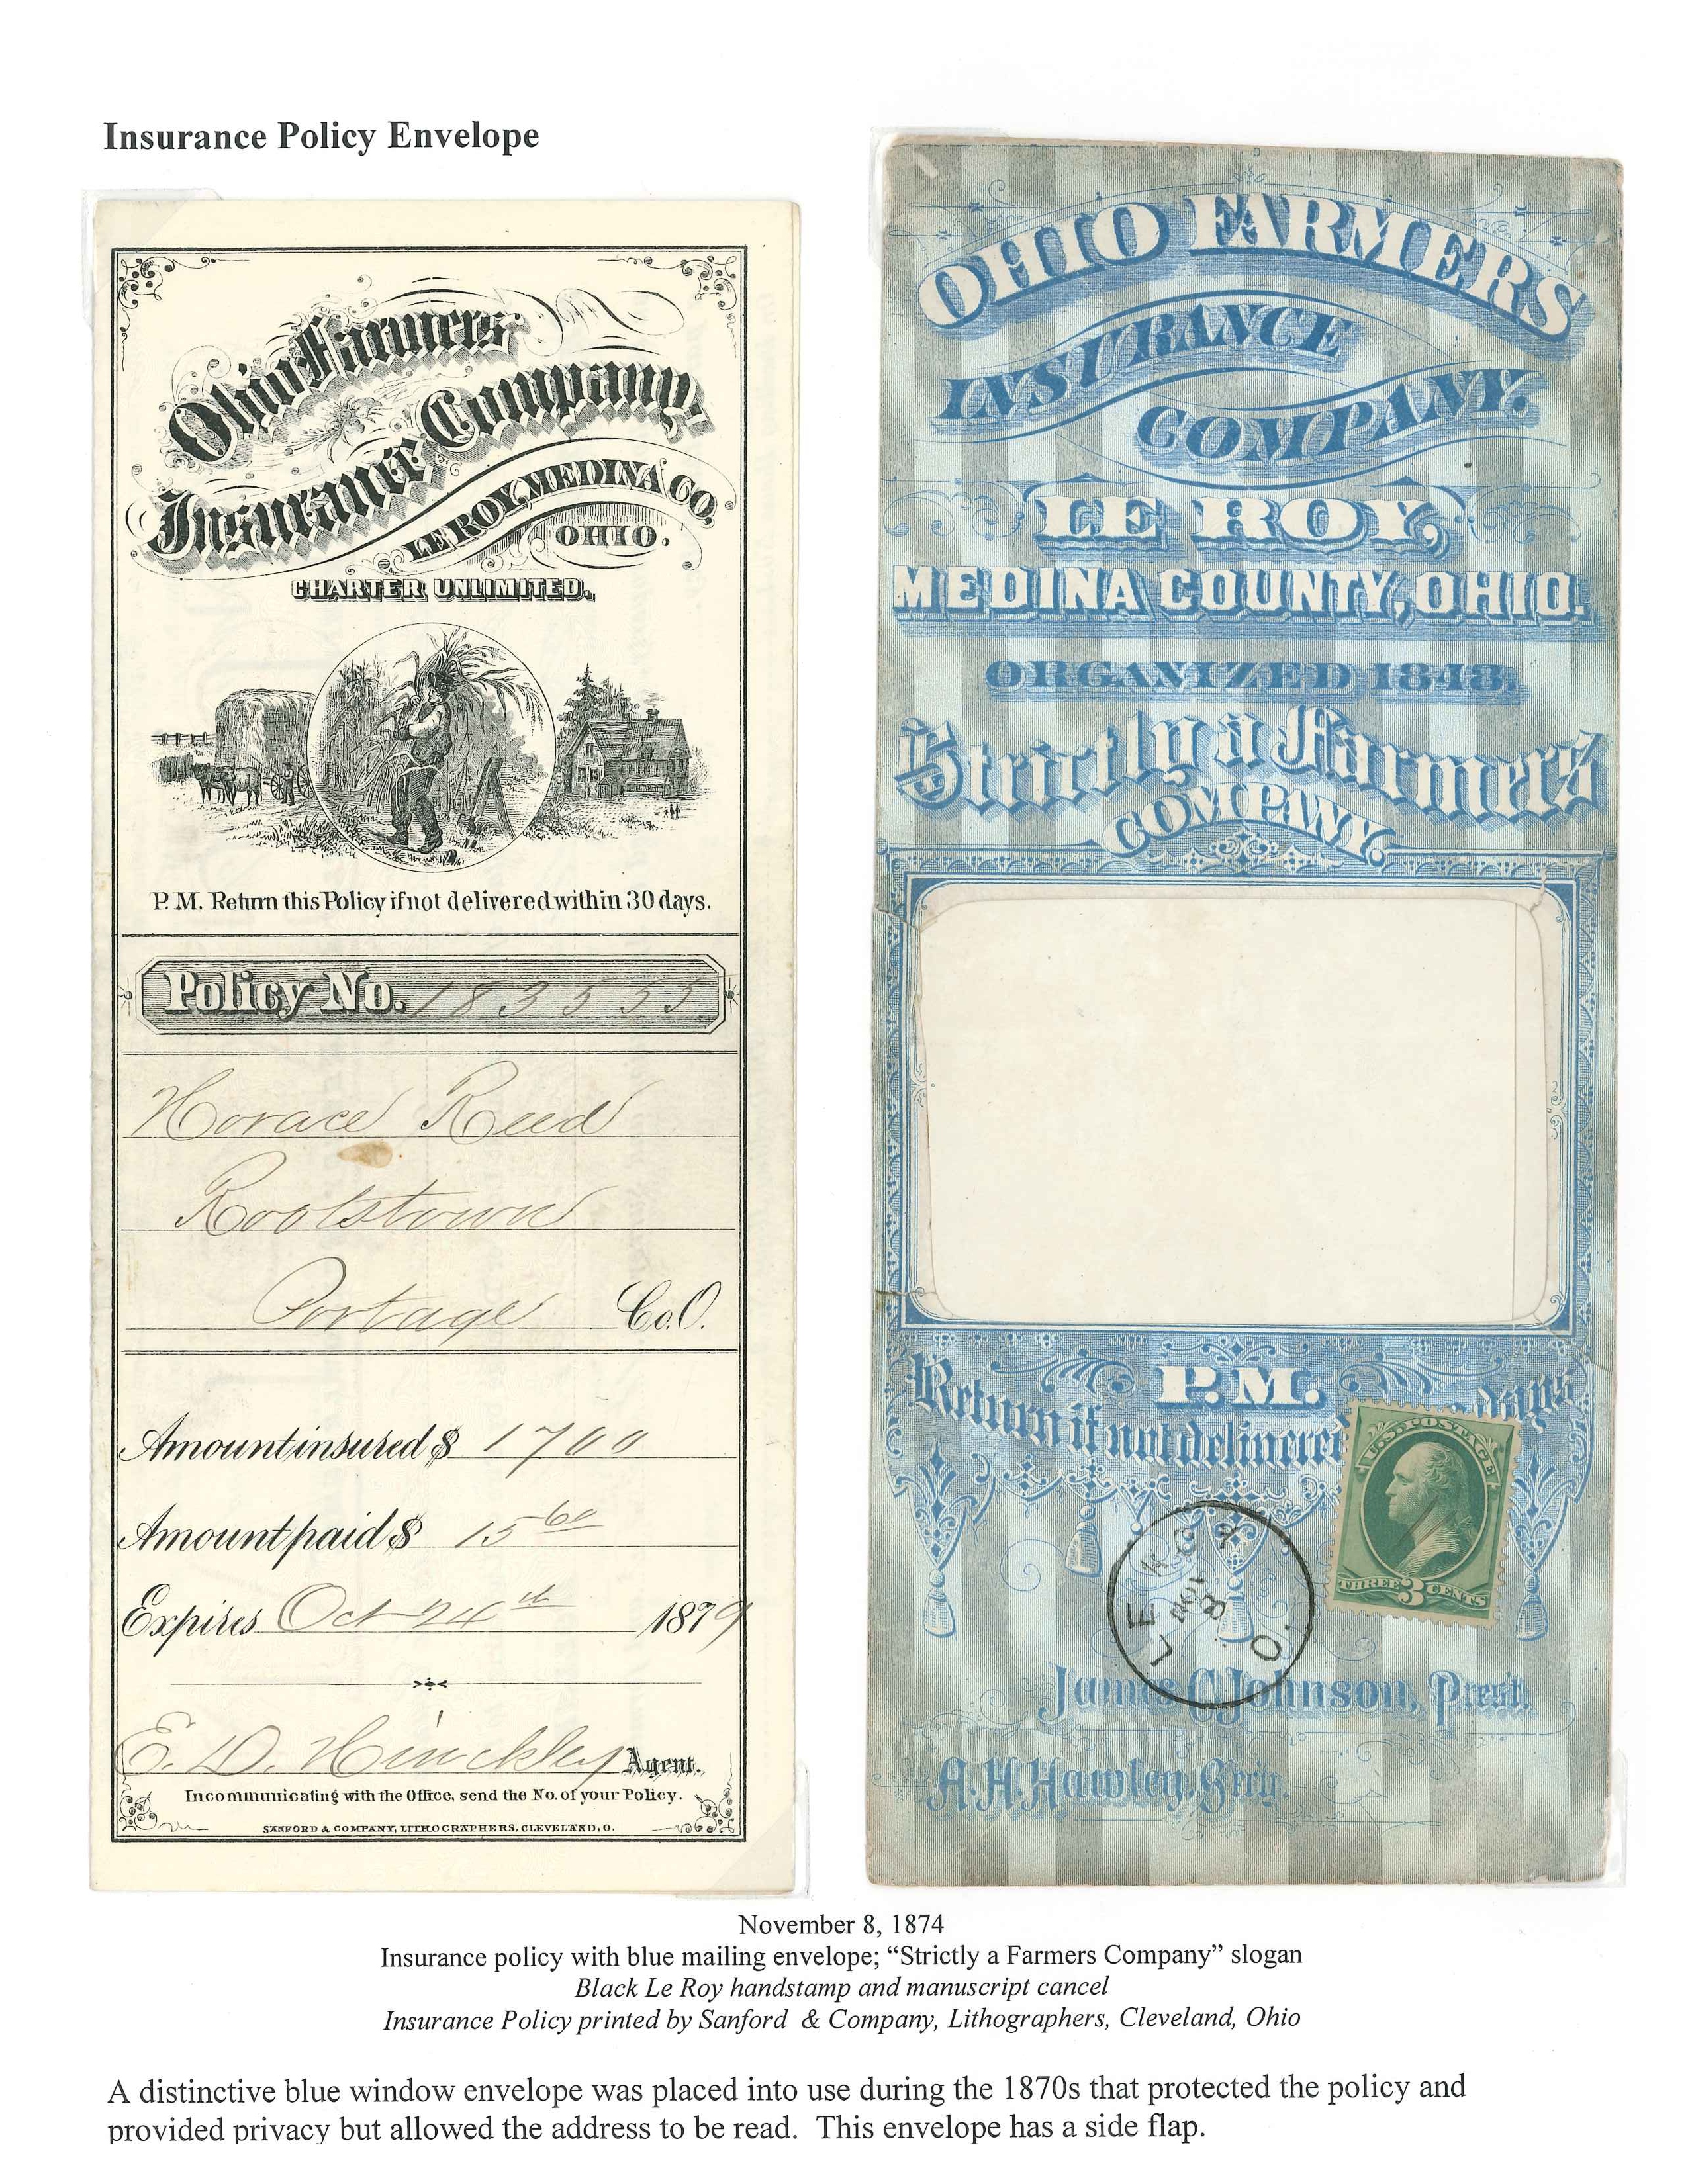 Insurance Policy Envelope
Ohio Farmers
Insurance Company,
LE ROY, MEDINA CO,
OHIO.
CHARTER UNLIMITED.
P. M. Return this Policy if not delivered within 30 days.
Policy No. 183555
Horace Reed
Rootstown
Portage Co. O.
Amount insured $ 1700
Amount paid $ 15 60
Expires Oct 24th 1879
E. D. Hinckley Agent.
In communicating with the Office, send the No. of your Policy.
SANFORD & COMPANY, LITHOGRAPHERS, CLEVELAND, O.
OHIO FARMERS
INSURANCE
COMPANY.
LE ROY,
MEDINA COUNTY, OHIO.
ORGANIZED 1848.
Strictly a Farmers
COMPANY.
P.M.
Return if not delivered days
U.S. POSTAGE
THREE 3 CENTS
LE ROY
NOV
8
O.
James C. Johnson, Prest.
A. H. Hawley, Secy.
November 8, 1874
Insurance policy with blue mailing envelope; “Strictly a Farmers Company” slogan
Black Le Roy handstamp and manuscript cancel
Insurance Policy printed by Sanford & Company, Lithographers, Cleveland, Ohio
A distinctive blue window envelope was placed into use during the 1870s that protected the policy and
provided privacy but allowed the address to be read. This envelope has a side flap.